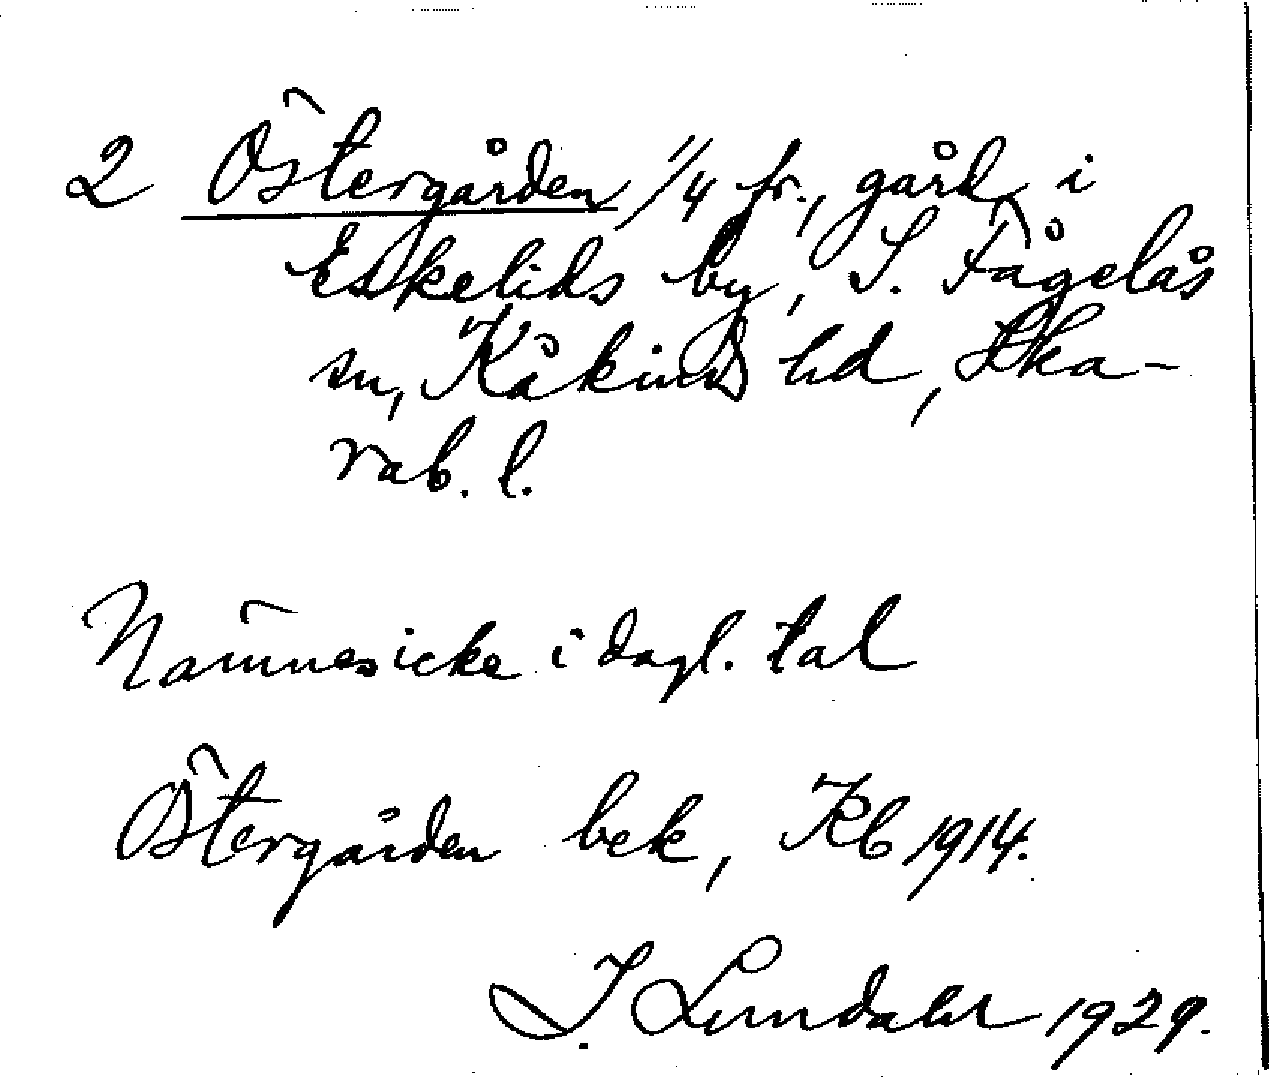 2 Östergården 1/4 fr., gård i
Eskelids by, S. Fågelås
sn, Kåkinds hd, Ska-
rab. l.
Nämnes icke i dagl. tal
Östergården bek, Kb 1914.
I. Lundahl 1929.